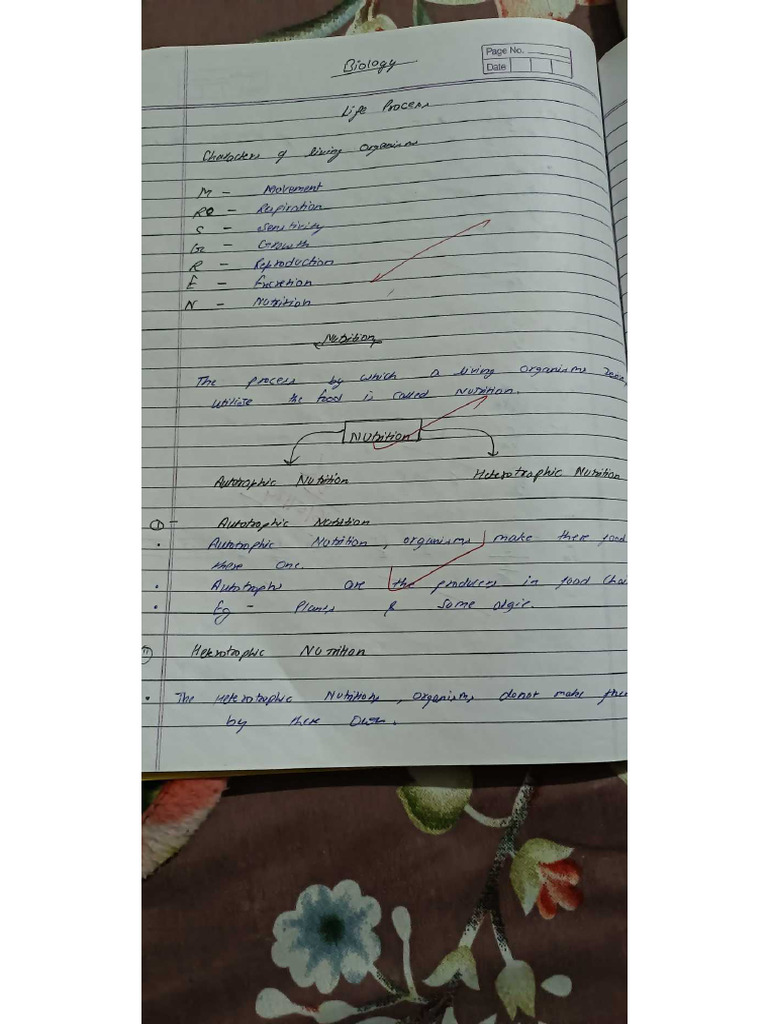 Biology
Page No.
Date
Life Process
Characters of living organisms
M - Movement
R - Rspiration
S - Sensitivity
G - Growth
R - Reproduction
E - Excretion
N - Nutrition
Nutrition
The process by which a living organisms
utilize the food is called Nutrition.
Nutrition
Autotrophic Nutrition Heterotrophic Nutrition
① - Autotrophic Nutrition
• Autotrophic Nutrition, organisms make there food
there one.
• Autotrophs are the producers in food
• Eg - Plants & some algie.
⑪ Heterotrophic Nutrition
• The Heterotrophic Nutritions, organisms donot make
by there own.